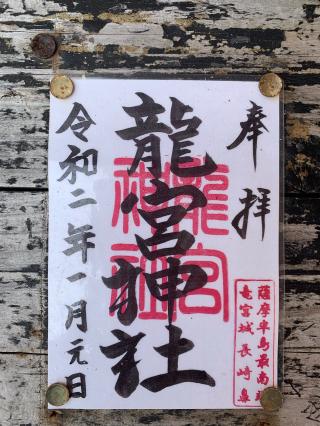 奉拝
龍宮神社
龍宮神社
薩摩半島最南端
竜宮城長崎鼻
令和二年一月元日